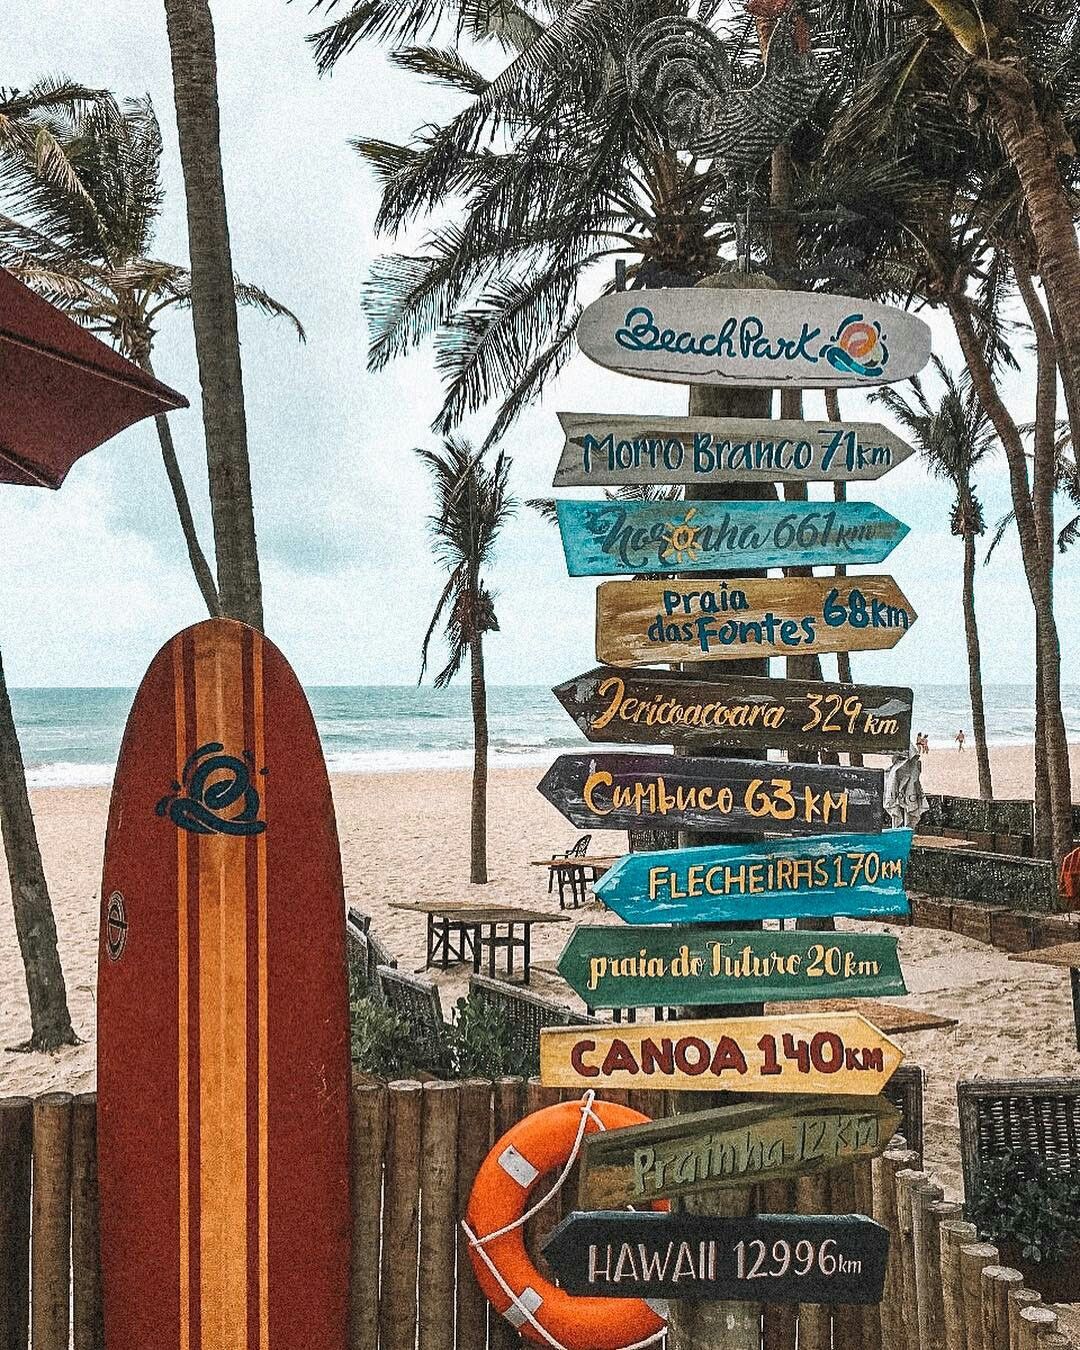 BeachPark
Morro Branco 71km
Noronha 661km
praia
das Fontes 68km
Jericoacoara 329km
Cumbuco 63KM
FLECHEIRAS 170KM
praia do Futuro 20km
CANOA 140KM
Prainha 12KM
HAWAII 12996km